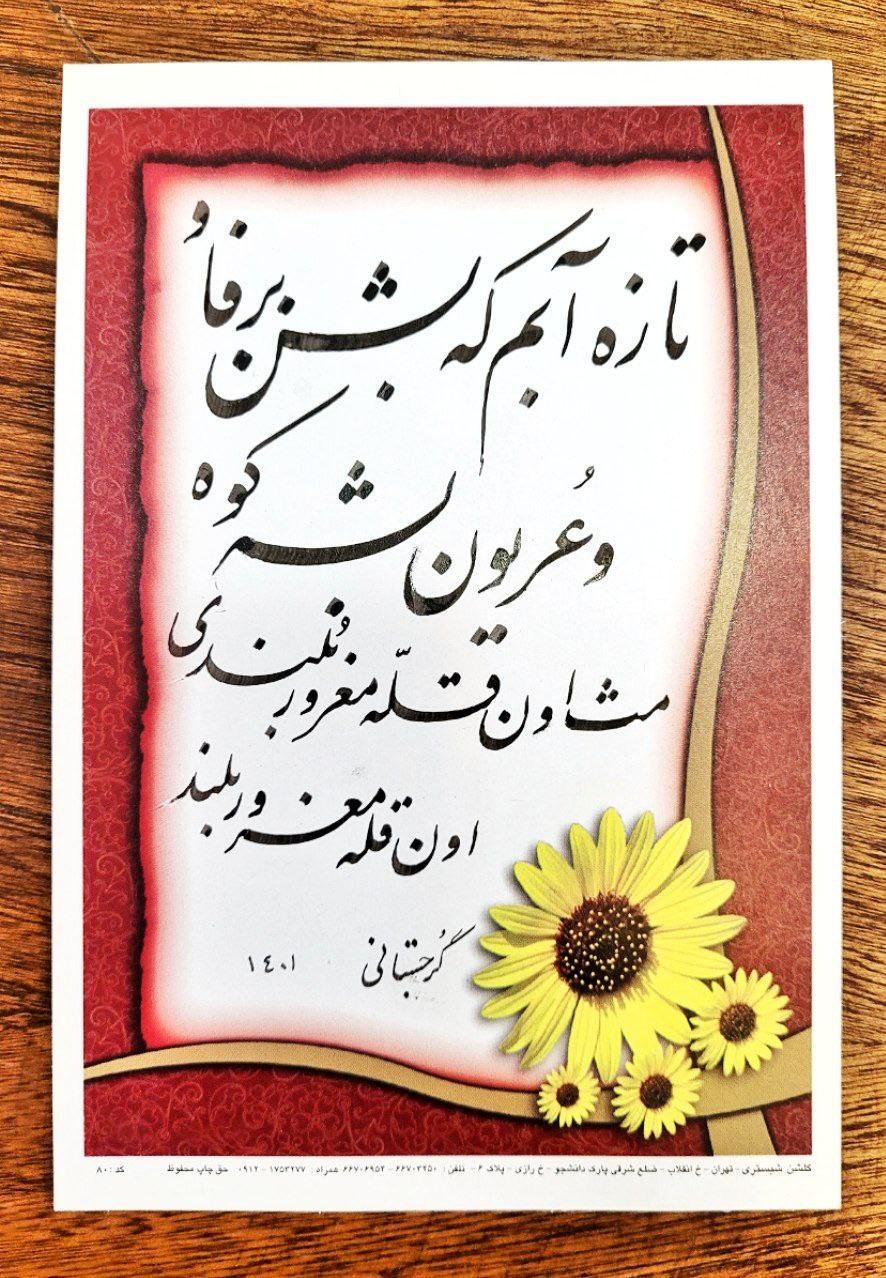 تازه آبم که بشن برفا وُ
وعُریون بشه کوه
مث اون قلّه مغرور بُلندی
اون قله مغرور بلند
گرجستانی
۱۴۰۱
گلشن شبستری - تهران - خ انقلاب - ضلع شرقی پارک دانشجو - خ رازی - پلاک ۶ - تلفن: ۶۶۷۰۳۲۵۰ - ۶۶۷۰۶۹۵۲ همراه: ۱۷۵۳۲۷۷ - ۰۹۱۲ حق چاپ محفوظ کد: ۸۰